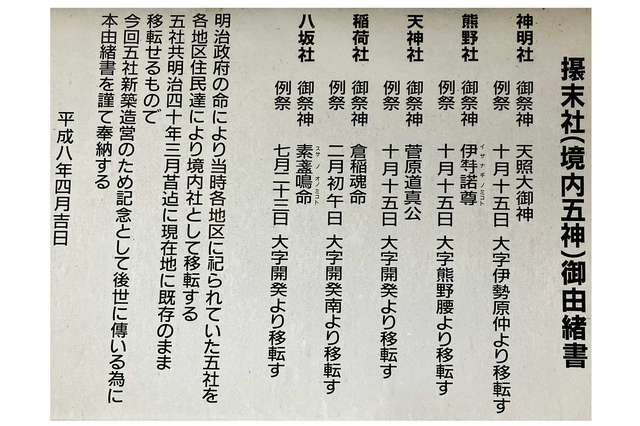 摂末社(境内五神)御由緒書
神明社 御祭神 天照大御神
例祭 十月十五日 大字伊勢原仲より移転す
熊野社 御祭神 伊弉諾尊
イサナギノミコト
例祭 十月十五日 大字熊野腰より移転す
天神社 御祭神 菅原道真公
例祭 十月十五日 大字開発より移転す
稲荷社 御祭神 倉稲魂命
例祭 二月初午日 大字開発南より移転す
八坂社 御祭神 素盞鳴命
スサノオノミコト
例祭 七月二十三日 大字開発より移転す
明治政府の命により当時各地区に祀られていた五社を
各地区住民達により境内社として移転する
五社共明治四十年三月莒迠に現在地に既存のまま
移転せるもので
今回五社新築造営のため記念として後世に傳いる為に
本由緒書を謹て奉納する
平成八年四月吉日